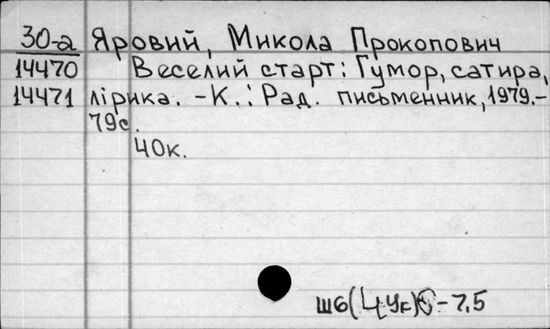 30-а Яровий, Микола Прокопович
14470 Веселий старт: Гумор, сатира,
14471 лірика. -К.: Рад. письменник, 1979.-
79с.
40к.
Ш6(4Ук)6-7,5